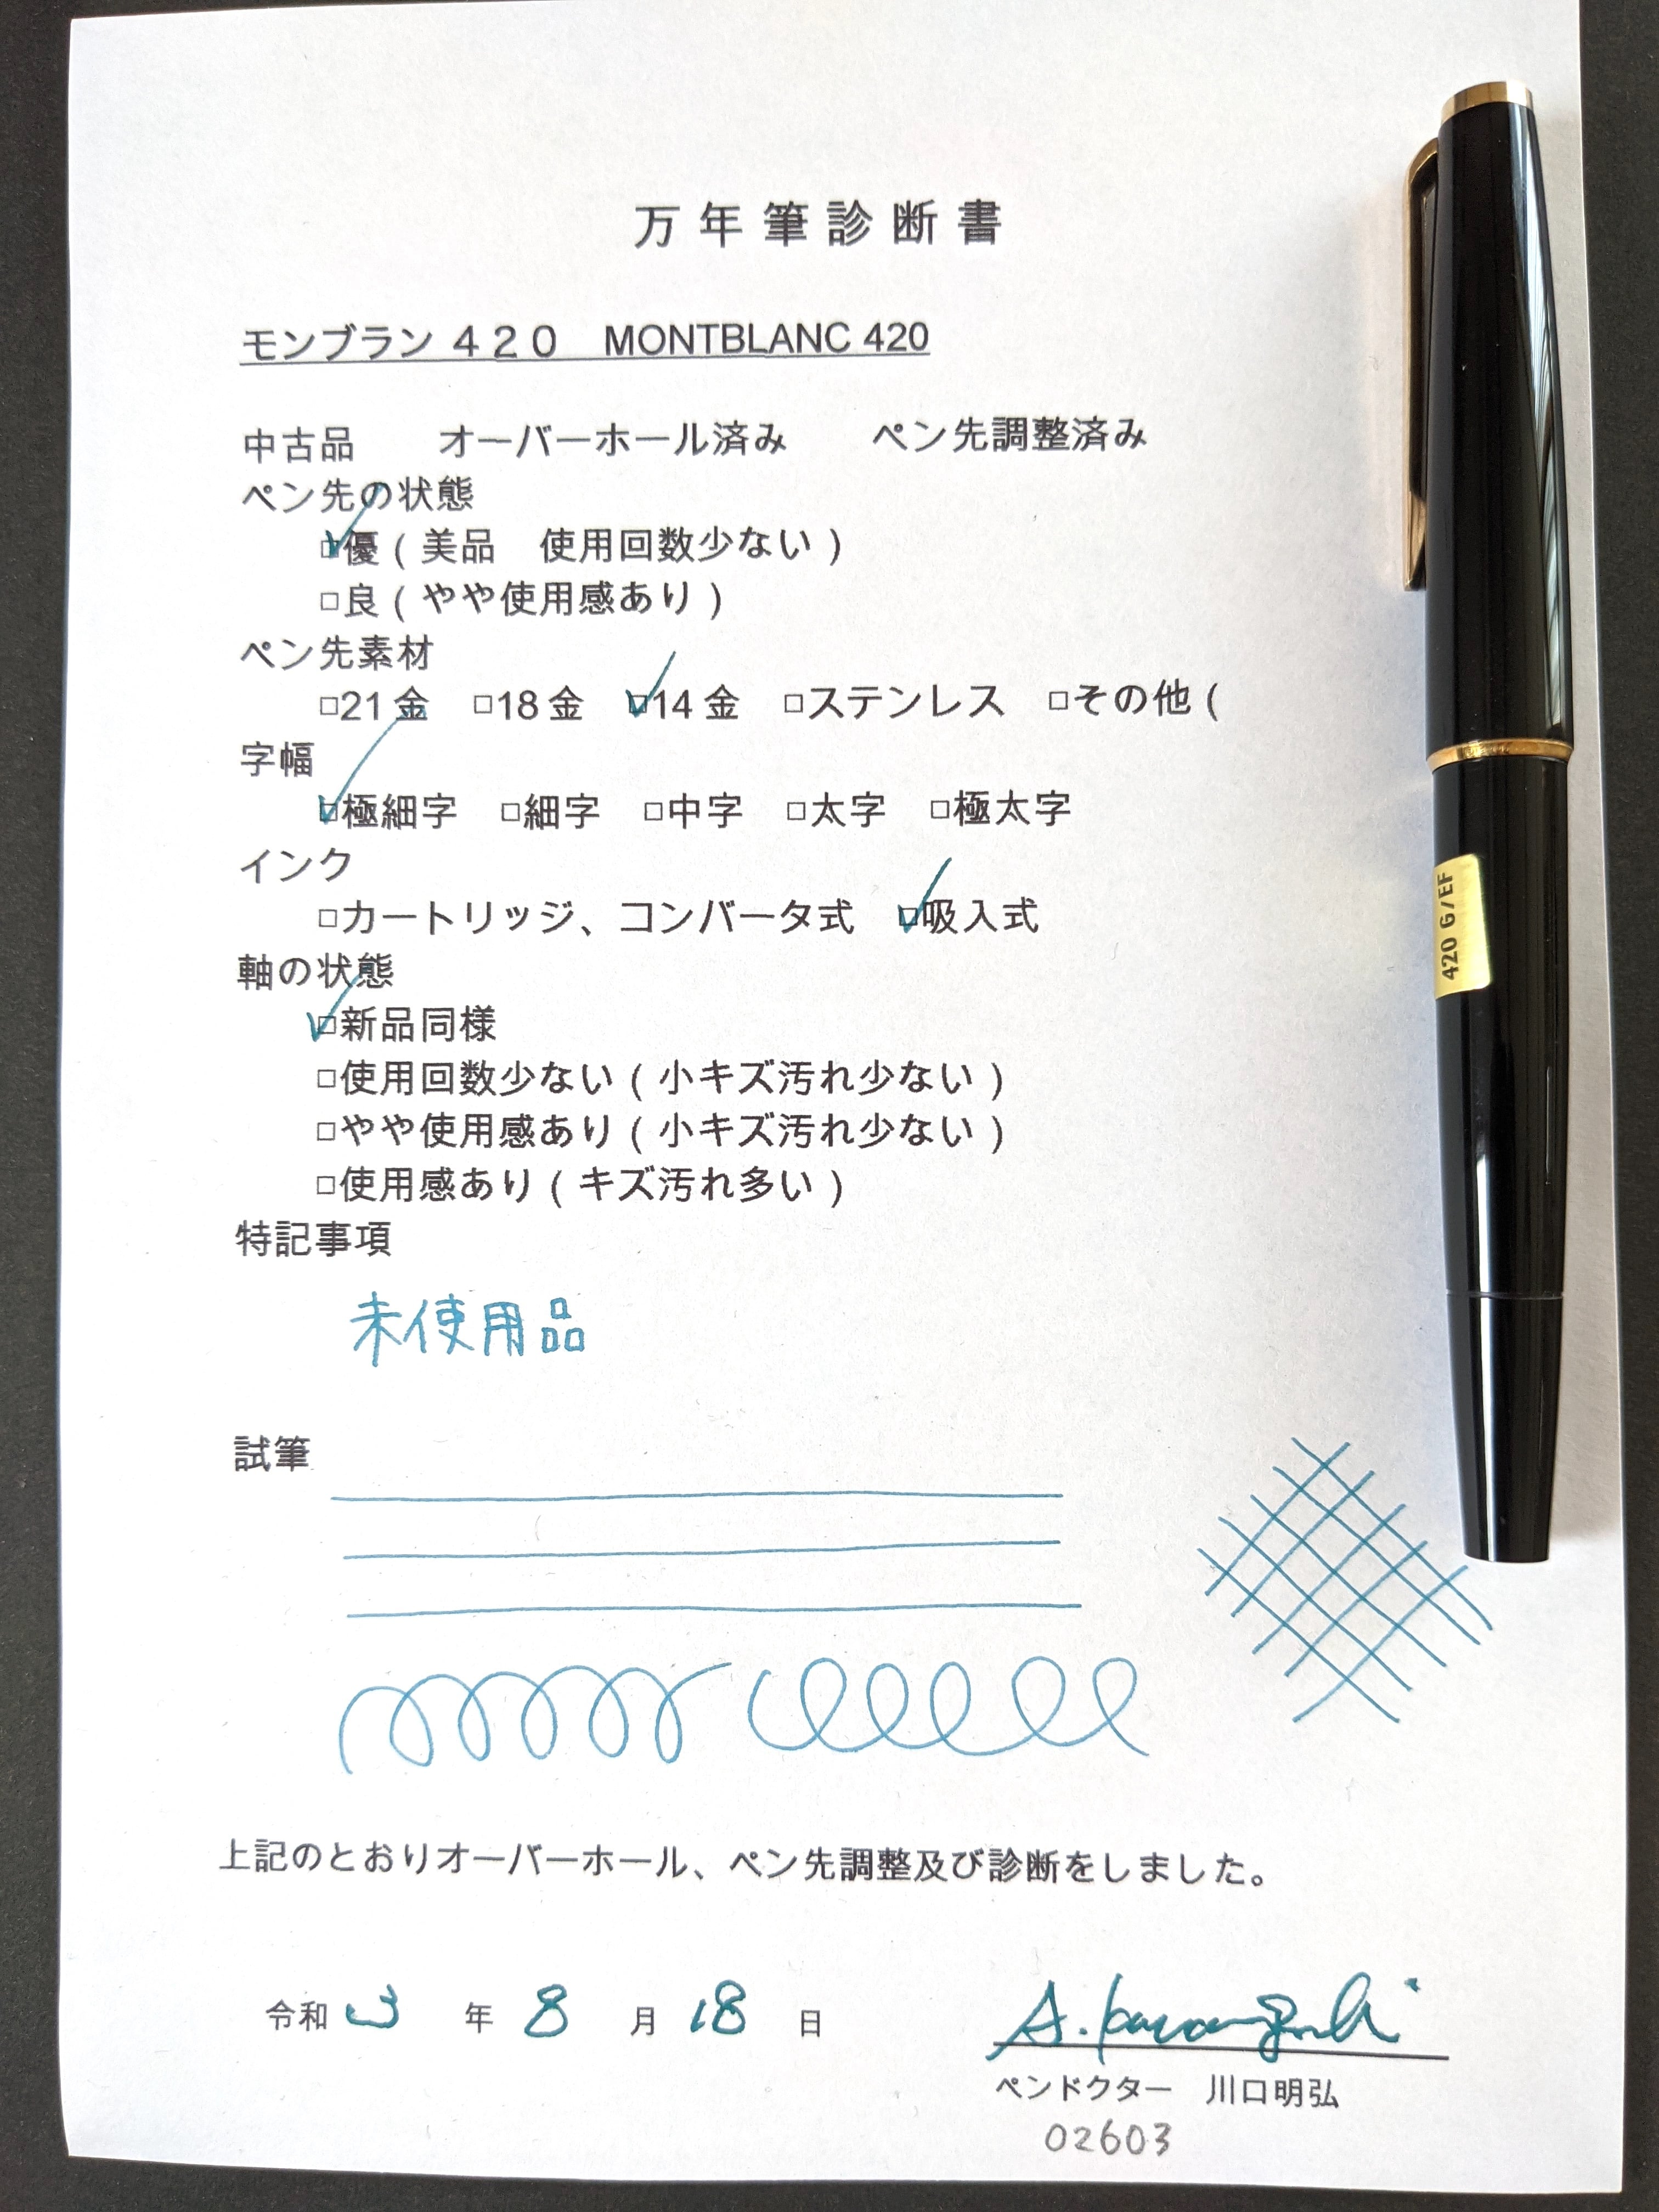 万年筆診断書
モンブラン４２０　MONTBLANC 420
中古品　オーバーホール済み　ペン先調整済み
ペン先の状態
☑優（美品　使用回数少ない）
□良（やや使用感あり）
ペン先素材
□21金　□18金　☑14金　□ステンレス　□その他（
字幅
☑極細字　□細字　□中字　□太字　□極太字
インク
□カートリッジ、コンバータ式　☑吸入式
軸の状態
☑新品同様
□使用回数少ない（小キズ汚れ少ない）
□やや使用感あり（小キズ汚れ少ない）
□使用感あり（キズ汚れ多い）
特記事項
未使用品
試筆
上記のとおりオーバーホール、ペン先調整及び診断をしました。
令和 3 年 8 月 18 日
A. Kawaguchi
ペンドクター　川口明弘
02603
420 G/EF